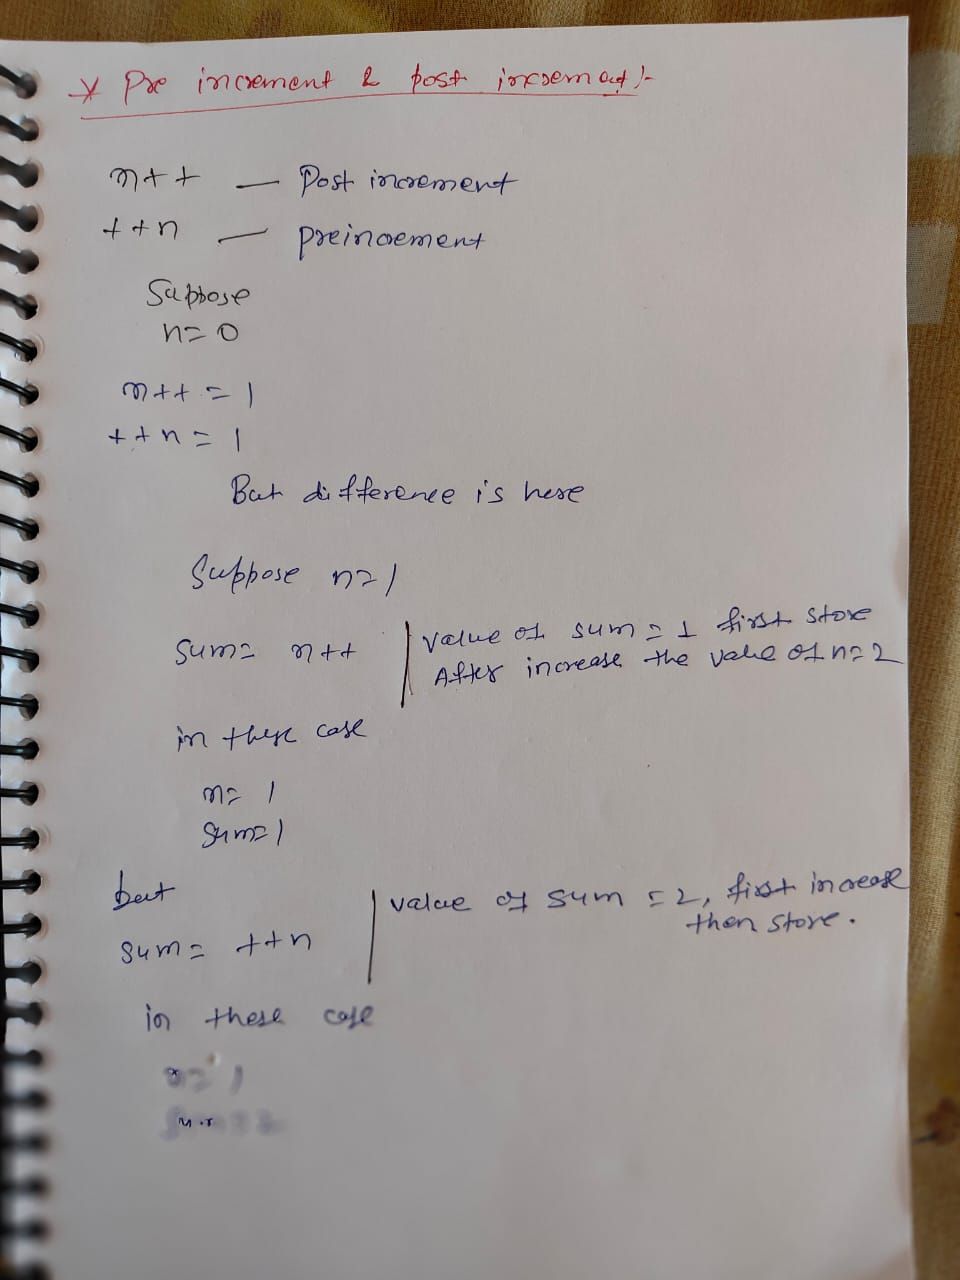 * Pre increment & post increment :-
n++ — Post increment
++n — preincement
Suppose
n=0
n++ = 1
++n = 1
But difference is here
Suppose n=1
sum= n++ | value of sum = 1 first store
After increase the value of n=2
in these case
n= 1
sum=1
but
sum= ++n | value of sum =2, first increase
then store.
in these case
n= 1